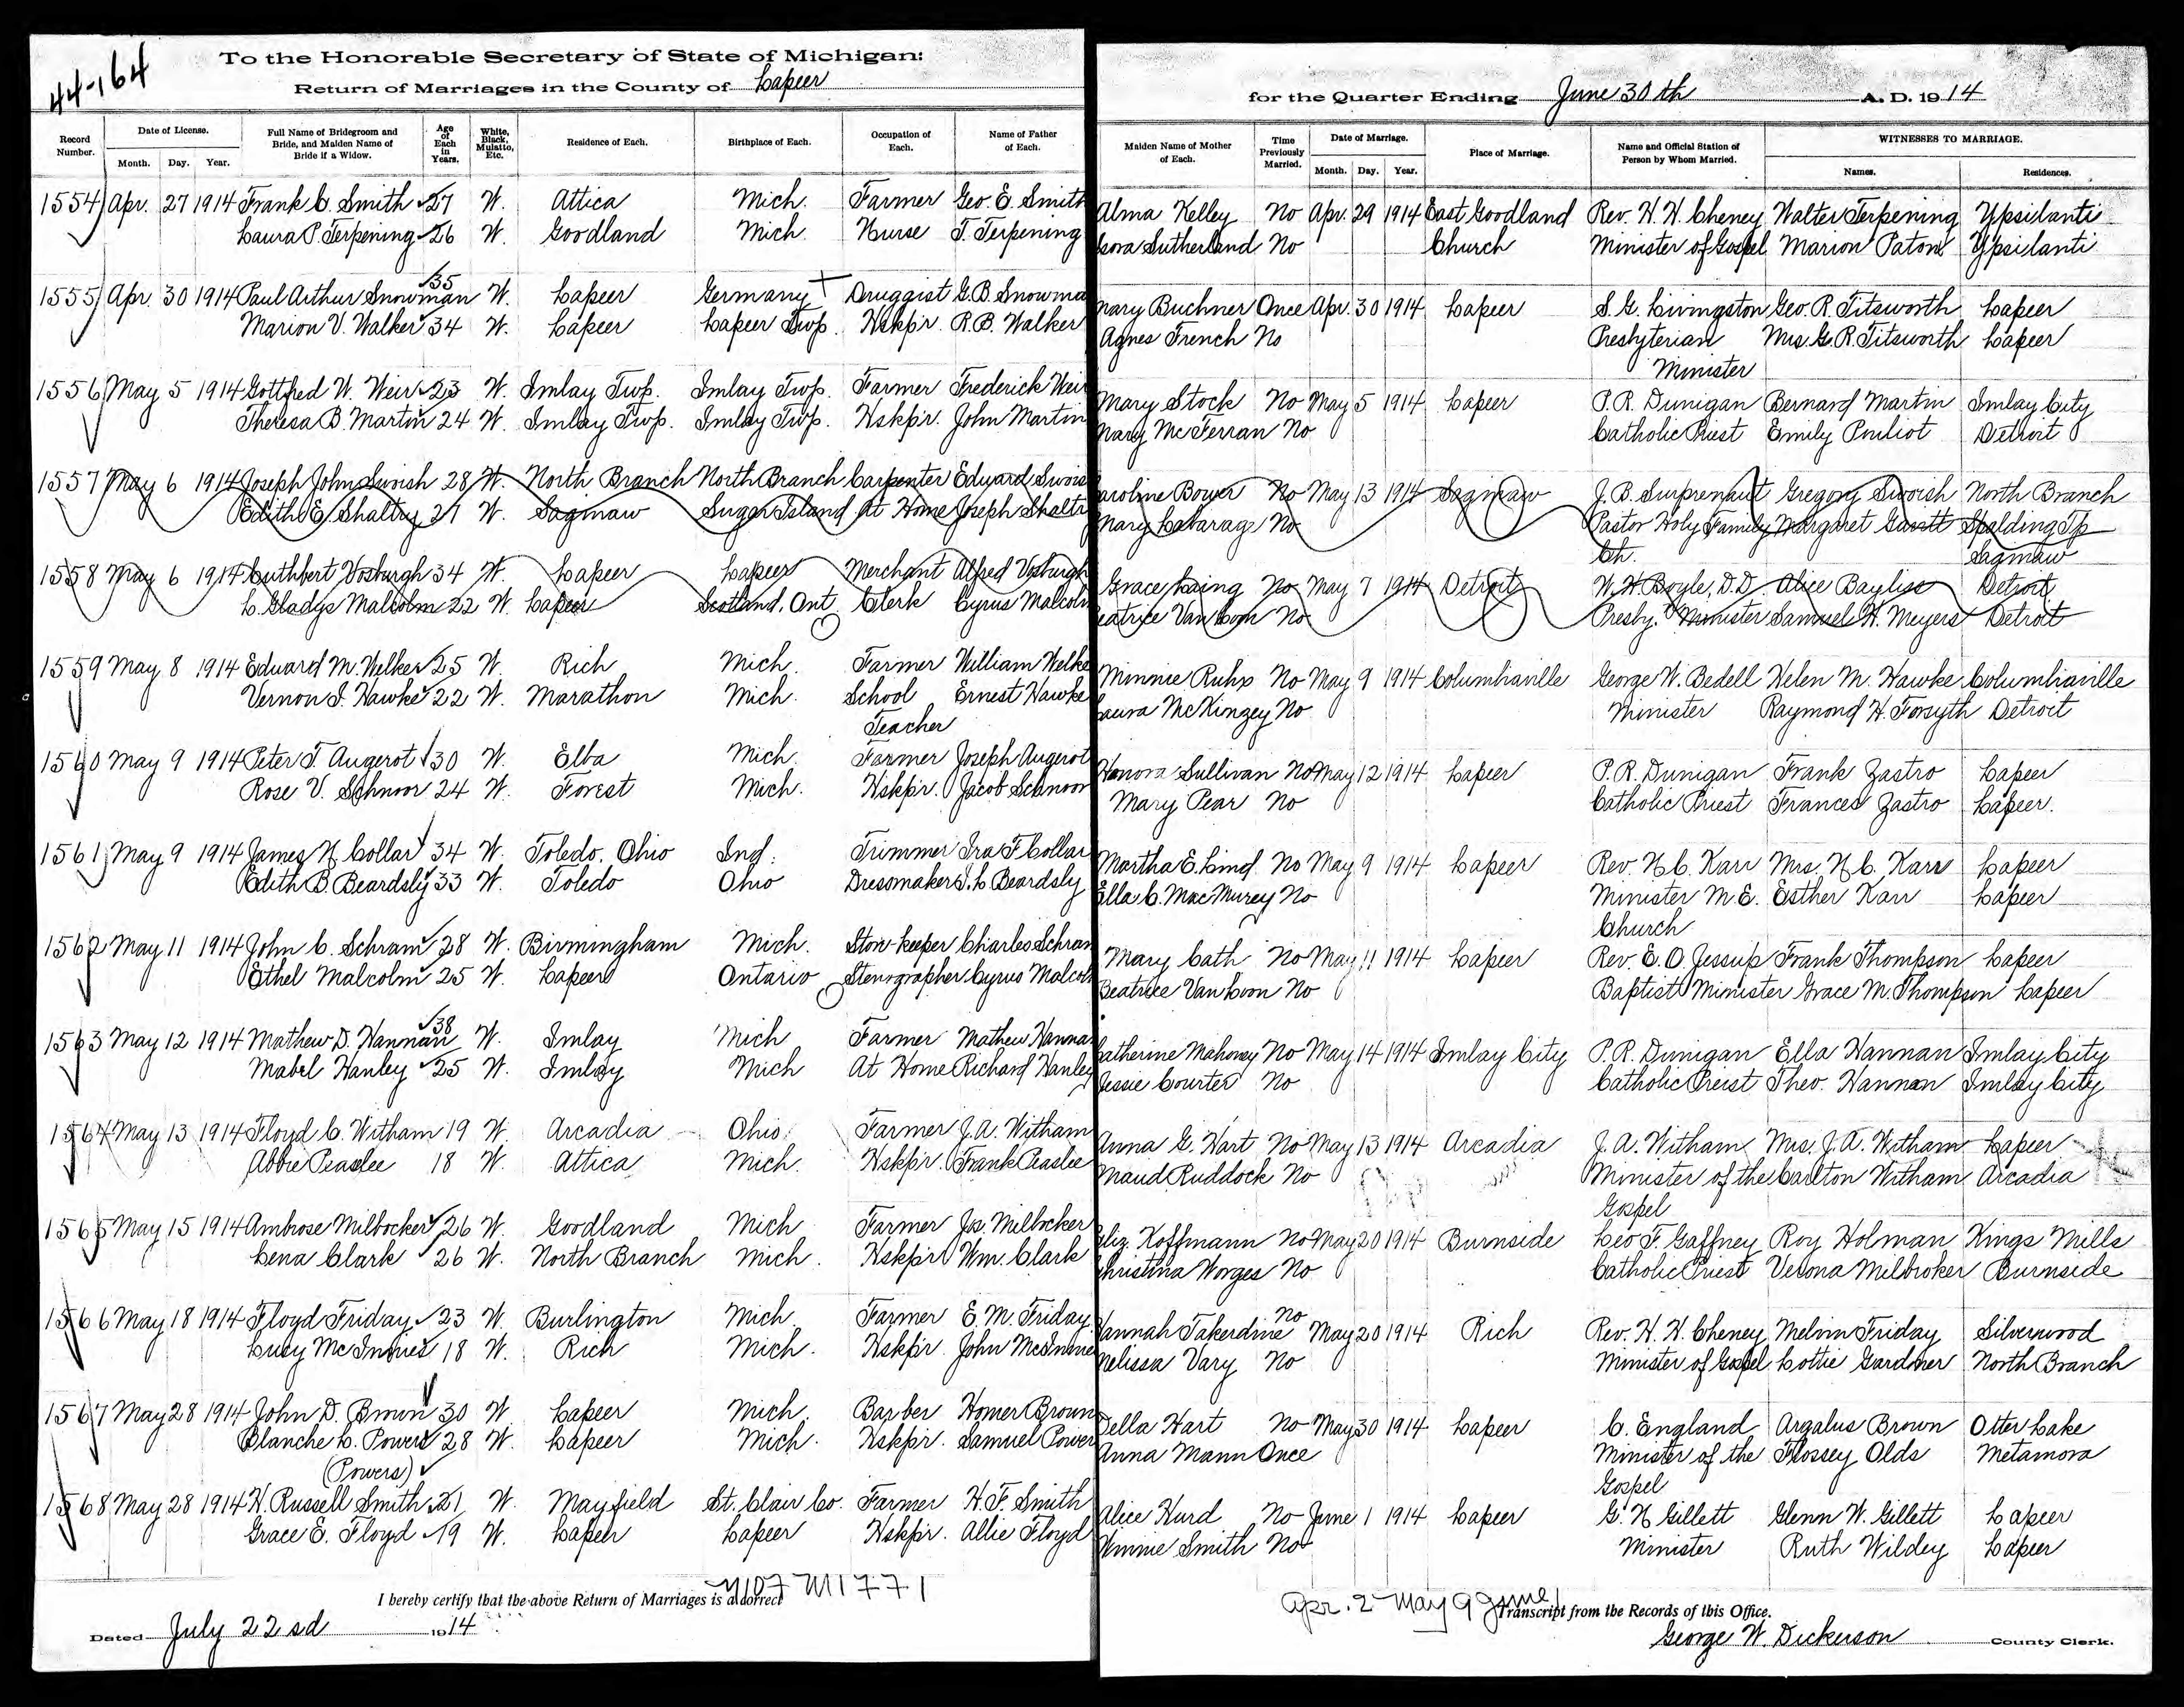 44-164
To the Honorable Secretary of State of Michigan:
Return of Marriages in the County of Lapeer for the Quarter Ending June 30th A. D. 1914
Record Number. Date of License. Month. Day. Year. Full Name of Bridegroom and Bride, and Maiden Name of Bride if a Widow. Age of Each in Years. White, Black, Mulatto, Etc. Residence of Each. Birthplace of Each. Occupation of Each. Name of Father of Each. Maiden Name of Mother of Each. Time Previously Married. Date of Marriage. Month. Day. Year. Place of Marriage. Name and Official Station of Person by Whom Married. WITNESSES TO MARRIAGE. Names. Residences.
1554 Apr. 27 1914 Frank C. Smith 27 W. Attica Mich. Farmer Geo. E. Smith Alma Kelley No Apr. 29 1914 East Goodland Rev. H. H. Cheney Walter Terpening Ypsilanti
Laura P. Terpening 26 W. Goodland Mich. Nurse T. Terpening Cora Sutherland No Church Minister of Gospel Marion Paton Ypsilanti
1555 Apr. 30 1914 Paul Arthur Snowman 35 W. Lapeer Germany Druggist G. B. Snowma Mary Buchner Once Apr. 30 1914 Lapeer S. G. Livingston Geo. R. Titsworth Lapeer
Marion V. Walker 34 W. Lapeer Lapeer Twp. Hskpr. R. B. Walker Agnes French No Presbyterian Mrs. G. R. Titsworth Lapeer
Minister
1556 May 5 1914 Gottfred W. Weir 23 W. Imlay Twp. Imlay Twp. Farmer Frederick Wei Mary Stock No May 5 1914 Lapeer P. R. Dunigan Bernard Martin Imlay City
Theresa B. Martin 24 W. Imlay Twp. Imlay Twp. Hskpr. John Martin Mary McFerran No Catholic Priest Emily Pouliot Detroit
1557 May 6 1914 Joseph John Swoish 28 W. North Branch North Branch Carpenter Edward Swois Caroline Bower No May 13 1914 Saginaw J. B. Surprenaut Gregory Swoish North Branch
Edith E. Shaltry 21 W. Saginaw Sugar Island At Home Joseph Shaltr Mary No Pastor Holy Family Margaret Spalding Tp
Ch. Saginaw
1558 May 6 1914 Cuthbert Vosburgh 34 W. Lapeer Lapeer Merchant Alfred Vosburgh Grace Laing No May 7 1914 Detroit W. H. Boyle, D.D. Alice Bayliss Detroit
L. Gladys Malcolm 22 W. Lapeer Scotland, Ont. Clerk Cyrus Malcolm Beatrice Van Loon No Presby. Minister Samuel H. Meyers Detroit
1559 May 8 1914 Edward M. Welker 25 W. Rich Mich. Farmer William Welke Minnie Ruhp No May 9 1914 Columbiaville George W. Bedell Helen M. Hawke Columbiaville
Vernon I. Hawke 22 W. Marathon Mich. School Ernest Hawke Laura McKinzey No Minister Raymond H. Forsyth Detroit
Teacher
1560 May 9 1914 Peter T. Augerot 30 W. Elba Mich. Farmer Joseph Augerot Honora Sullivan No May 12 1914 Lapeer P. R. Dunigan Frank Zastro Lapeer
Rose V. Schnoor 24 W. Forest Mich. Hskpr. Jacob Schnoor Mary Pear No Catholic Priest Frances Zastro Lapeer.
1561 May 9 1914 James H. Collar 34 W. Toledo. Ohio Ind. Trimmer Ira F Collar Martha E. Lind No May 9 1914 Lapeer Rev. H. C. Karr Mrs. H. C. Karr Lapeer
Edith B. Beardsly 33 W. Toledo Ohio Dressmaker S. L. Beardsly Ella C. MacMurey No Minister M.E. Esther Karr Lapeer
Church
1562 May 11 1914 John C. Schram 28 W. Birmingham Mich. Store-keeper Charles Schram Mary Cath No May 11 1914 Lapeer Rev. E. O. Jessup Frank Thompson Lapeer
Ethel Malcolm 25 W. Lapeer Ontario Stenographer Cyrus Malcolm Beatrice Van Loon No Baptist Minister Grace M. Thompson Lapeer
1563 May 12 1914 Mathew D. Hannan 38 W. Imlay Mich Farmer Mathew Hanna Catherine Mahoney No May 14 1914 Imlay City P. R. Dunigan Ella Hannan Imlay City
Mabel Hanley 25 W. Imlay Mich At Home Richard Hanley Jessie Courter No Catholic Preist Theo. Hannan Imlay City
1564 May 13 1914 Floyd C. Witham 19 W. Arcadia Ohio Farmer J. A. Witham Anna G. Hart No May 13 1914 Arcadia J. A. Witham Mrs. J. A. Witham Lapeer
Abbie Peaslee 18 W. Attica Mich. Hskpr. Frank Peaslee Maud Ruddock No Minister of the Carlton Witham Arcadia
Gospel
1565 May 15 1914 Ambrose Milbocker 26 W. Goodland Mich Farmer Jos. Milbocker Eliz. Koffmann No May 20 1914 Burnside Leo F. Gaffney Roy Holman Kings Mills
Lena Clark 26 W. North Branch Mich. Hskpr Wm. Clark Christina Worges No Catholic Priest Verona Milbroker Burnside
1566 May 18 1914 Floyd Friday 23 W. Burlington Mich. Farmer E. M. Friday Hannah Takerdine No May 20 1914 Rich Rev. H. H. Cheney Melvin Friday Silverwood
Lucy McInnies 18 W. Rich Mich. Hskpr. John McInnie Melissa Vary No Minister of Gospel Lottie Gardner North Branch
1567 May 28 1914 John D. Brown 30 W. Lapeer Mich. Barber Homer Brown Della Hart No May 30 1914 Lapeer C. England Argalus Brown Otter Lake
Blanche L. Powers 28 W. Lapeer Mich. Hskpr. Samuel Power Anna Mann Once Minister of the Flossey Olds Metamora
(Powers) Gospel
1568 May 28 1914 H. Russell Smith 21 W. Mayfield St. Clair Co. Farmer H. F. Smith Alice Hurd No June 1 1914 Lapeer G. H Gillett Glenn W. Gillett Lapeer
Grace E. Floyd 19 W. Lapeer Lapeer Hskpr. Allie Floyd Winnie Smith No Minister Ruth Wildey Lapeer
I hereby certify that the above Return of Marriages is a correct Transcript from the Records of this Office.
M107 M1771
Apr. 2 May 9 June 1
Dated July 22sd 1914 George W. Dickerson County Clerk.